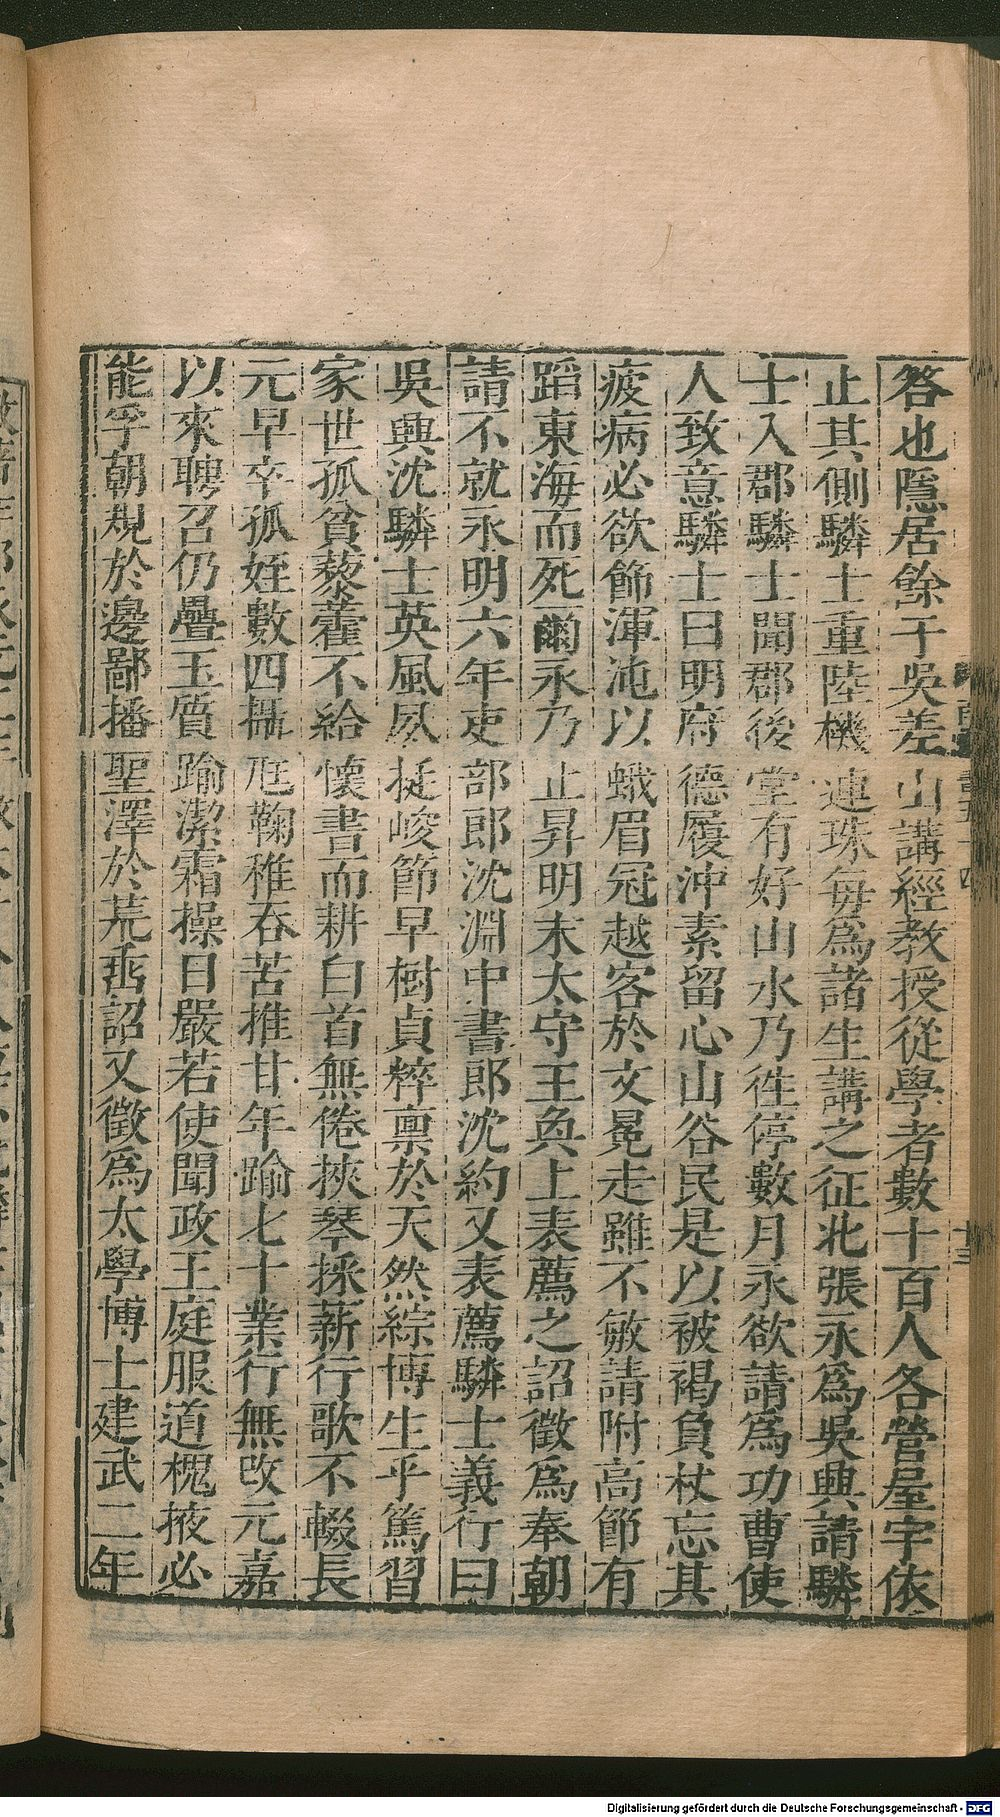 答也隱居餘干吳差山講經教授從學者數十百人各營屋宇依
止其側驎士重陸機連珠每爲諸生講之征北張永爲吳興請驎
士入郡驎士聞郡後堂有好山水乃徃停數月永欲請爲功曹使
人致意驎士曰明府德履沖素留心山谷民是以被褐負杖忘其
疲病必欲飾渾沌以蛾眉冠越客於文冕走雖不敏請附高節有
蹈東海而死爾永乃止昇明末太守王奐上表薦之詔徵爲奉朝
請不就永明六年吏部郎沈淵中書郎沈約又表薦驎士義行曰
吳興沈驎士英風夙挺峻節早樹貞粹稟於天然綜博生乎篤習
家世孤貧藜藿不給懷書而耕白首無倦挾琴採薪行歌不輟長
元早卒孤姪數四攝尫鞠稚吞苦推甘年踰七十業行無改元嘉
以來聘召仍疊玉質踰潔霜操日嚴若使聞政王庭服道槐掖必
能孚朝規於邊鄙播聖澤於荒垂詔又徵爲太學博士建武二年
十三
Digitalisierung gefördert durch die Deutsche Forschungsgemeinschaft - DFG